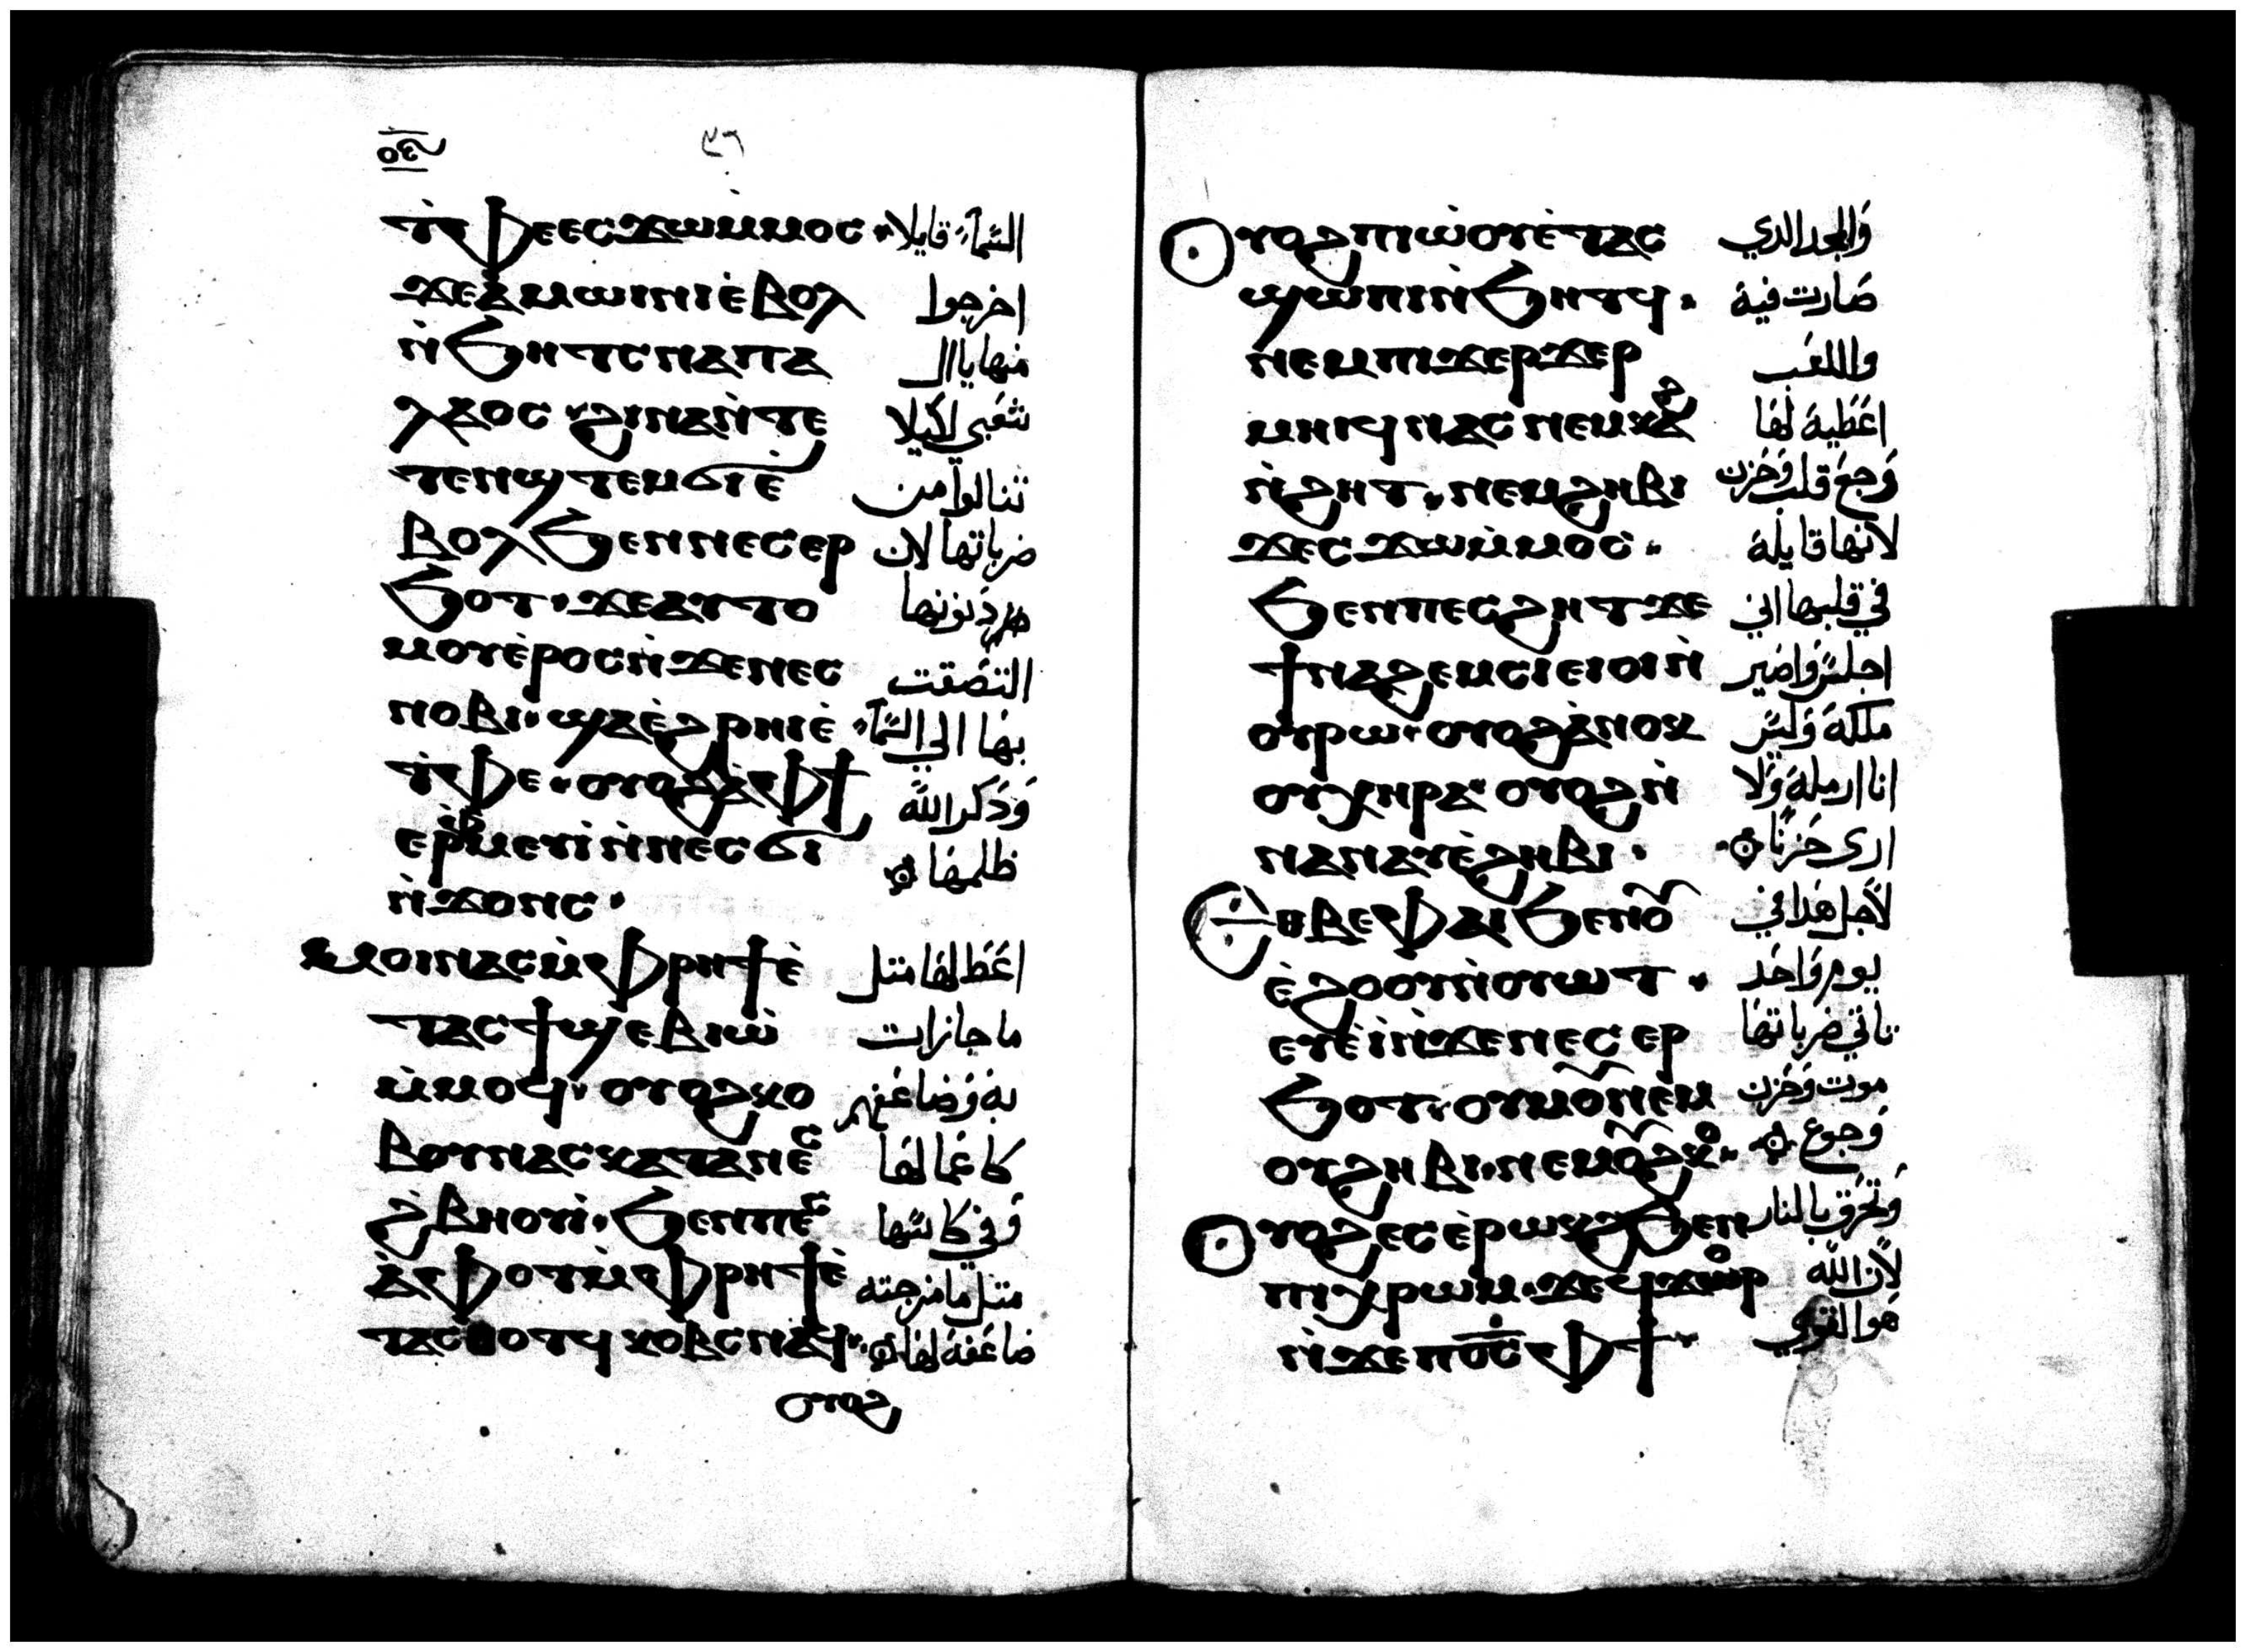 ⲟⲉ
٣٦
ⲧ̀ⲫⲉ ⲉⲥϫⲱⲙ̀ⲙⲟⲥ السَّمآء قايلا
ϫⲉⲁⲙⲱⲓⲛⲓ ⲉ̀ⲃⲟⲗ اخرجوا
ⲛ̀ϧⲏⲧⲥ ⲡⲁⲡⲁ منها يا ال
ⲗⲁⲟⲥ ϩⲓⲛⲁ ⲛ̀ⲧⲉ شعبي لكيلا
ⲧⲉⲛϣⲧⲉⲙϭⲓ ⲉ̀ تنالوا من
ⲃⲟⲗϧⲉⲛⲛⲉⲥⲉⲣ ضرباتها لان
ϧⲟⲧ ϫⲉⲁⲩⲧⲟ دنونها
ⲙⲟⲩ ⲉ̀ⲣⲟⲥ ⲛ̀ϫⲉⲛⲉⲥ التصقت
ⲛⲟⲃⲓ ϣⲁⲉ̀ϩⲣⲏⲓ ⲉ̀ بها الي السَّمآء
ⲧ̀ⲫⲉ ⲟⲩⲟϩ ⲁ̀ⲫϯ وَذكر الله
ⲉⲣⲫ̀ⲙⲉⲩⲓ ⲛ̀ⲛⲉⲥϭⲓ ظلمها
ⲛ̀ϫⲟⲛⲥ
ⲙⲟⲓⲛⲁⲥ ⲙ̀ⲫⲣⲏϯ ⲉ̀ اعَط لها متل
ⲧⲁⲥϯϣⲉⲃⲓⲱ̀ ما جازات
ⲙ̀ⲙⲟϥ ⲟⲩⲟϩ ⲕⲟ به وَضاعَف
ⲃⲟⲩⲛⲁⲥ ⲕⲁⲧⲁⲛⲉⲥ كاعَمالها
ϩ̀ⲃⲏⲟⲩⲓ ϧⲉⲛⲡⲉⲥ وَفي كاسها
ⲁ̀ⲫⲟⲧ ⲙ̀ⲫⲣⲏϯ ⲉ̀ متل ما مزجته
ⲧⲁⲥⲑⲟⲧϥ ⲕⲟⲃⲥ ⲛⲁϥ ضاعَفه لها
ⲟⲩⲟϩ
ⲟⲩⲟϩ ⲡⲓⲱ̀ⲟⲩ ⲉ̀ⲧⲁⲥ وَالمجد الدي
ϣⲱⲡⲓ ⲛ̀ϧⲏⲧϥ صَارت فيه
ⲛⲉⲙⲡⲓϫⲉⲣϫⲉⲣ واللعَب
ⲙⲏⲓϥ ⲛⲁⲥ ⲛⲉⲙⲕⲁϩ اعَطيه لها
ⲛ̀ϩⲏⲧ ⲛⲉⲙϩⲏⲃⲓ وَجع قلب وَحَزن
ϫⲉⲥϫⲱⲙ̀ⲙⲟⲥ لانها قايله
ϧⲉⲛⲡⲉⲥϩⲏⲧ ϫⲉ في قلبها اني
ϯⲛⲁϩⲉⲙⲥⲓ ⲉⲓⲟⲓ ⲛ̀ اجلس وَاصير
ⲟⲩⲣⲱ ⲟⲩⲟϩ ⲁ̀ⲛⲟⲕ ملكه وَليس
ⲟⲩⲭⲏⲣⲁ ⲟⲩⲟϩ ⲛ̀ انا ارمله وَلا
ⲛⲁⲛⲁⲩ ⲉ̀ϩⲏⲃⲓ اري حَزنًا
ⲉⲑⲃⲉⲫⲁⲓ ϧⲉⲛⲟⲩ لاجل هدا في
ⲉ̀ϩⲟⲟⲩ ⲛ̀ⲟⲩⲱⲧ يوم وَاحَد
ⲉⲩⲉ̀ⲓ̀ ⲛ̀ϫⲉⲛⲉⲥⲉⲣ تاتي ضرباتها
ϧⲟⲧ ⲟⲩⲙⲟⲩ ⲛⲉⲙ موت وَحَزن
ⲟⲩϩⲏⲃⲓ ⲛⲉⲙⲟⲩϩⲕⲟ وَجوع
ⲟⲩⲟϩ ⲉⲥⲉ̀ⲣⲱⲕϩ ϧⲉⲛ وَتحَرق بالنار
ⲡⲓⲭⲣⲱⲙ ϫⲉϥϫⲟⲣ لان الله
ⲛ̀ϫⲉⲡⲟ̅ⲥ̅ ⲫϯ هَوا القوي